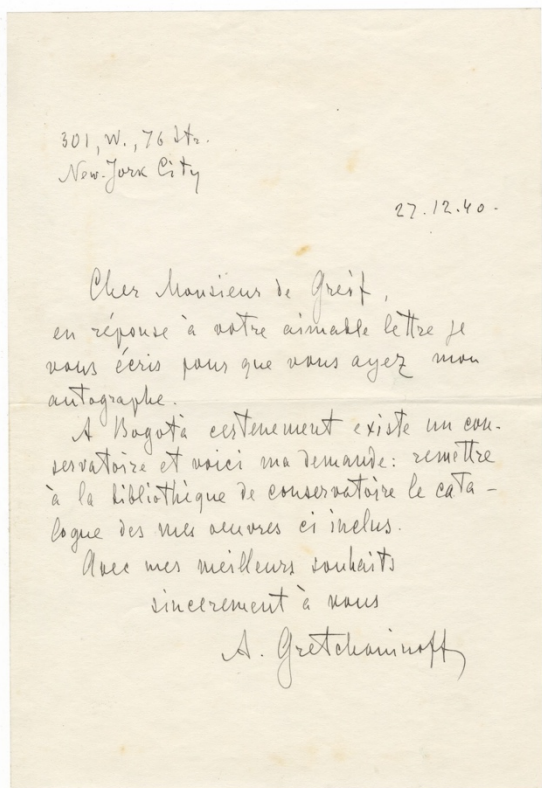 301, W., 76 Str.
New-Jork City
27.12.40.
Cher Monsieur de Greif,
en réponse à votre aimable lettre je
vous écris pour que vous ayez mon
autographe.
A Bogotà certenement existe un con-
servatoire et voici ma demande: remettre
à la bibliothèque de conservatoire le cata-
logue des mes oeuvres ci inclus.
Avec mes meilleurs souhaits
sincerement à vous
A. Gretchaninoff